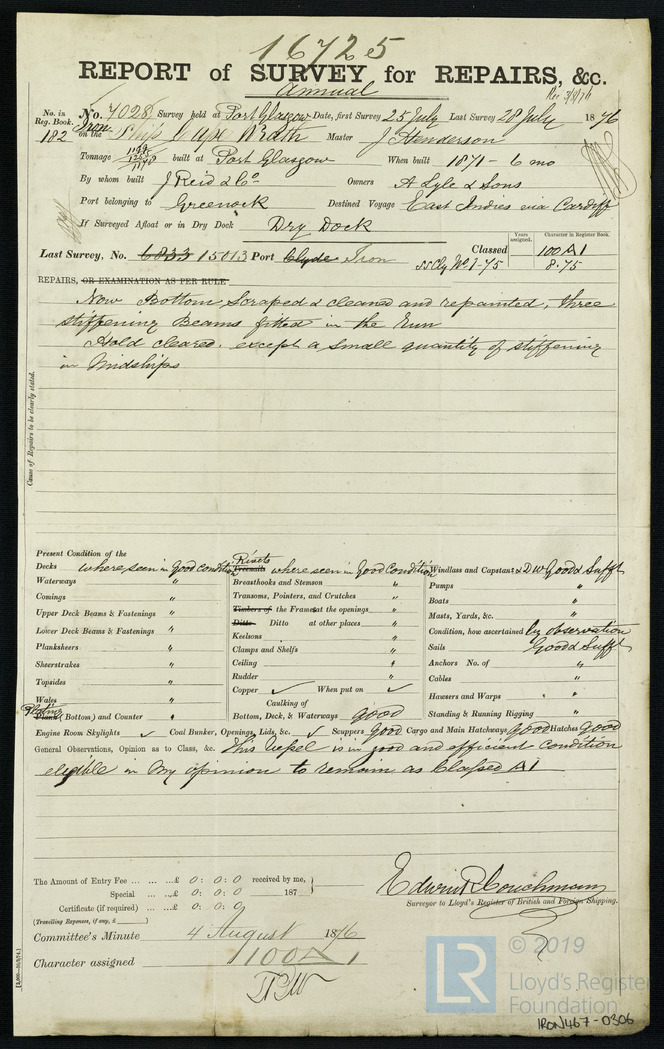 16725
REPORT of SURVEY for REPAIRS, &c.
Annual
Rec 3/8/76
No. in Reg. Book. No. 7028 Survey held at Port Glasgow Date, first Survey 25 July Last Survey 28 July 1876
182 on the Iron Ship Cape Wrath Master J Henderson
Tonnage built at Port Glasgow When built 1871 - 6 mo
By whom built J Reid & Co Owners A Lyle & Sons
Port belonging to Greenock Destined Voyage East Indies via Cardiff
If Surveyed Afloat or in Dry Dock Dry Dock
Years assigned. Character in Register Book.
Last Survey, No. 6833 15013 Port Clyde Iron Classed 100 A1
SS Cly No. 1-75 8.75
REPAIRS, OR EXAMINATION AS PER RULE
Now Bottom Scraped & cleaned and repainted, three
stiffening Beams fitted in the Run
Hold cleared, except a small quantity of stiffening
in Midships
Cause of Repairs to be clearly stated.
Present Condition of the
Decks where seen in good condition
Waterways "
Comings "
Upper Deck Beams & Fastenings "
Lower Deck Beams & Fastenings "
Planksheers "
Sheerstrakes "
Topsides "
Wales "
Plating Plank (Bottom) and Counter "
Rivets Treenails where seen in good condition
Breasthooks and Stemson "
Transoms, Pointers, and Crutches "
Timbers of the Frames at the openings "
Ditto Ditto at other places "
Keelsons "
Clamps and Shelfs "
Ceiling "
Rudder "
Copper ✓ When put on ✓
Caulking of
Bottom, Deck, & Waterways good
Windlass and Capstan & DW Good & Sufft
Pumps "
Boats "
Masts, Yards, &c. "
Condition, how ascertained by observation
Sails Good & Sufft
Anchors No. of "
Cables "
Hawsers and Warps "
Standing & Running Rigging "
Engine Room Skylights ✓ Coal Bunker, Openings, Lids, &c. ✓ Scuppers good Cargo and Main Hatchways good Hatches good
General Observations, Opinion as to Class, &c. This Vessel is in good and efficient condition
eligible in my opinion to remain as Classed A1
The Amount of Entry Fee ... ... ...£ 0 : 0 : 0 received by me,
Special ... ...£ 0 : 0 : 0 187
Certificate (if required) ... ...£ 0 : 0 : 0
(Travelling Expenses, if any, £ )
Edwin R Couchman
Surveyor to Lloyd's Register of British and Foreign Shipping.
Committee's Minute 4 August 1876
Character assigned 100 A1
LR © 2019
Lloyd's Register
Foundation
IRON467-0306